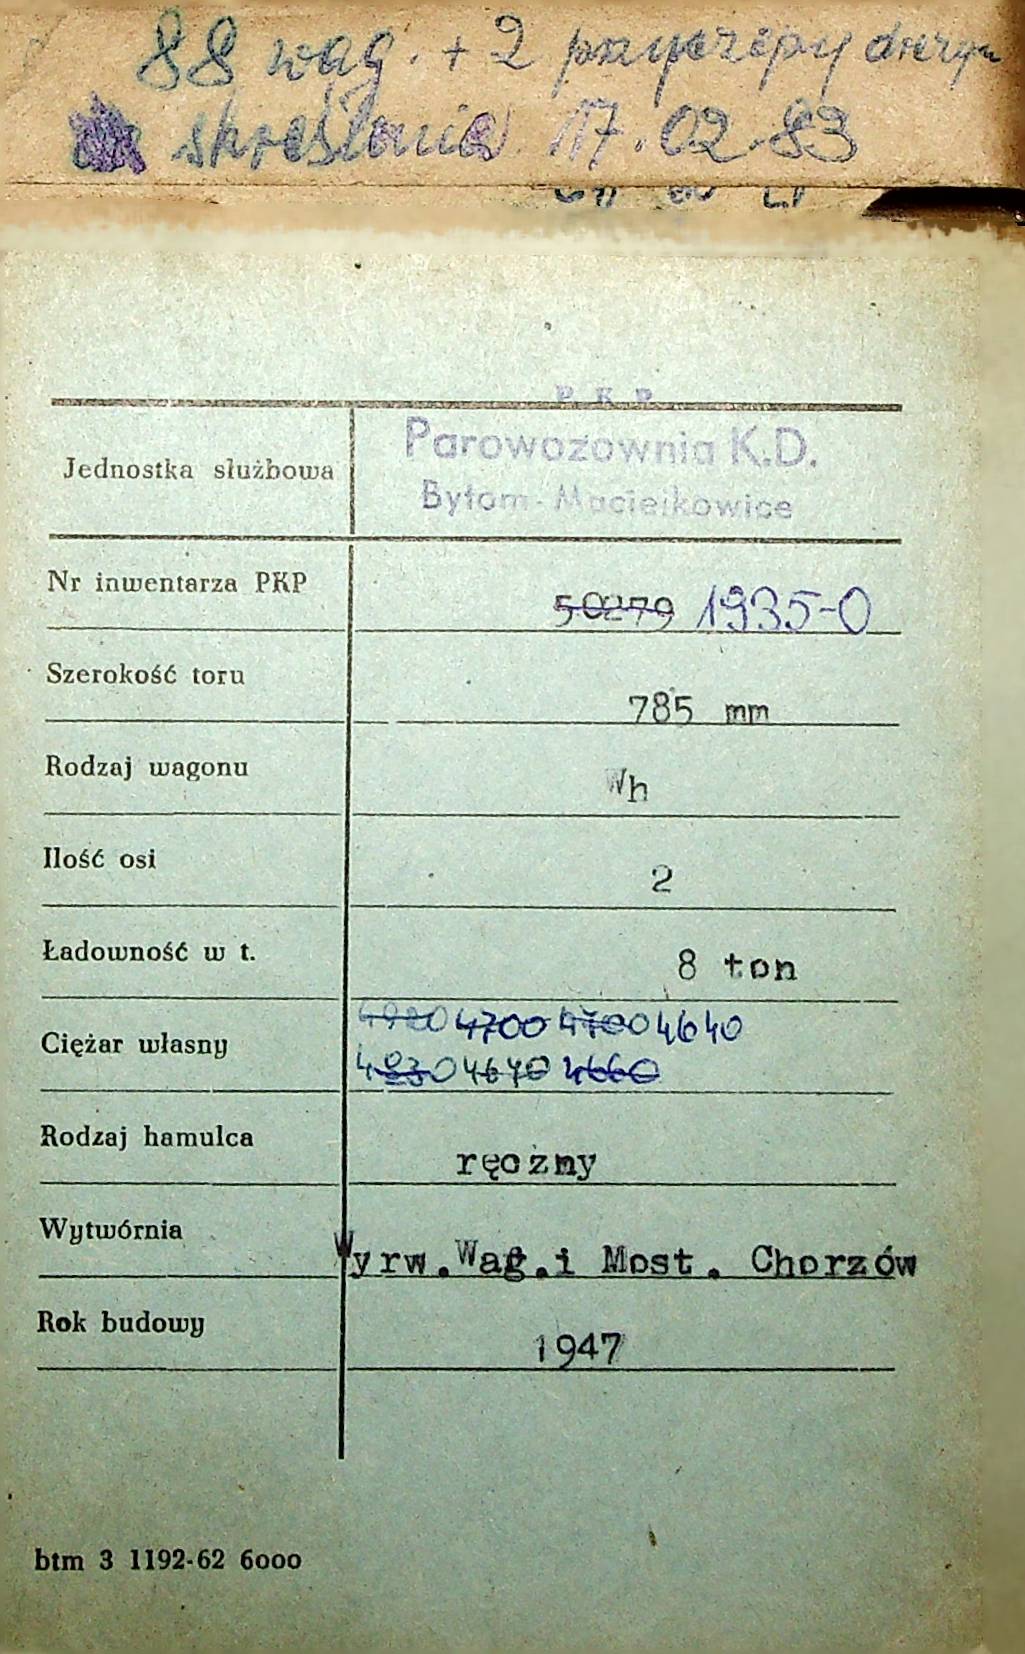 88 wag. + 2 przyczepy drezyn
skreślenia 17.02.83
P K P
Parowozownia K.D.
Jednostka służbowa
Bytom-Maciejkowice
Nr inwentarza PKP
50279 1935-0
Szerokość toru
785 mm
Rodzaj wagonu
Wh
Ilość osi
2
Ładowność w t.
8 ton
4980 4700 4700 4640
Ciężar własny
4830 4670 4660
Rodzaj hamulca
ręczny
Wytwórnia
Wyrw.Wag.i Most. Chorzów
Rok budowy
1947
btm 3 1192-62 6000